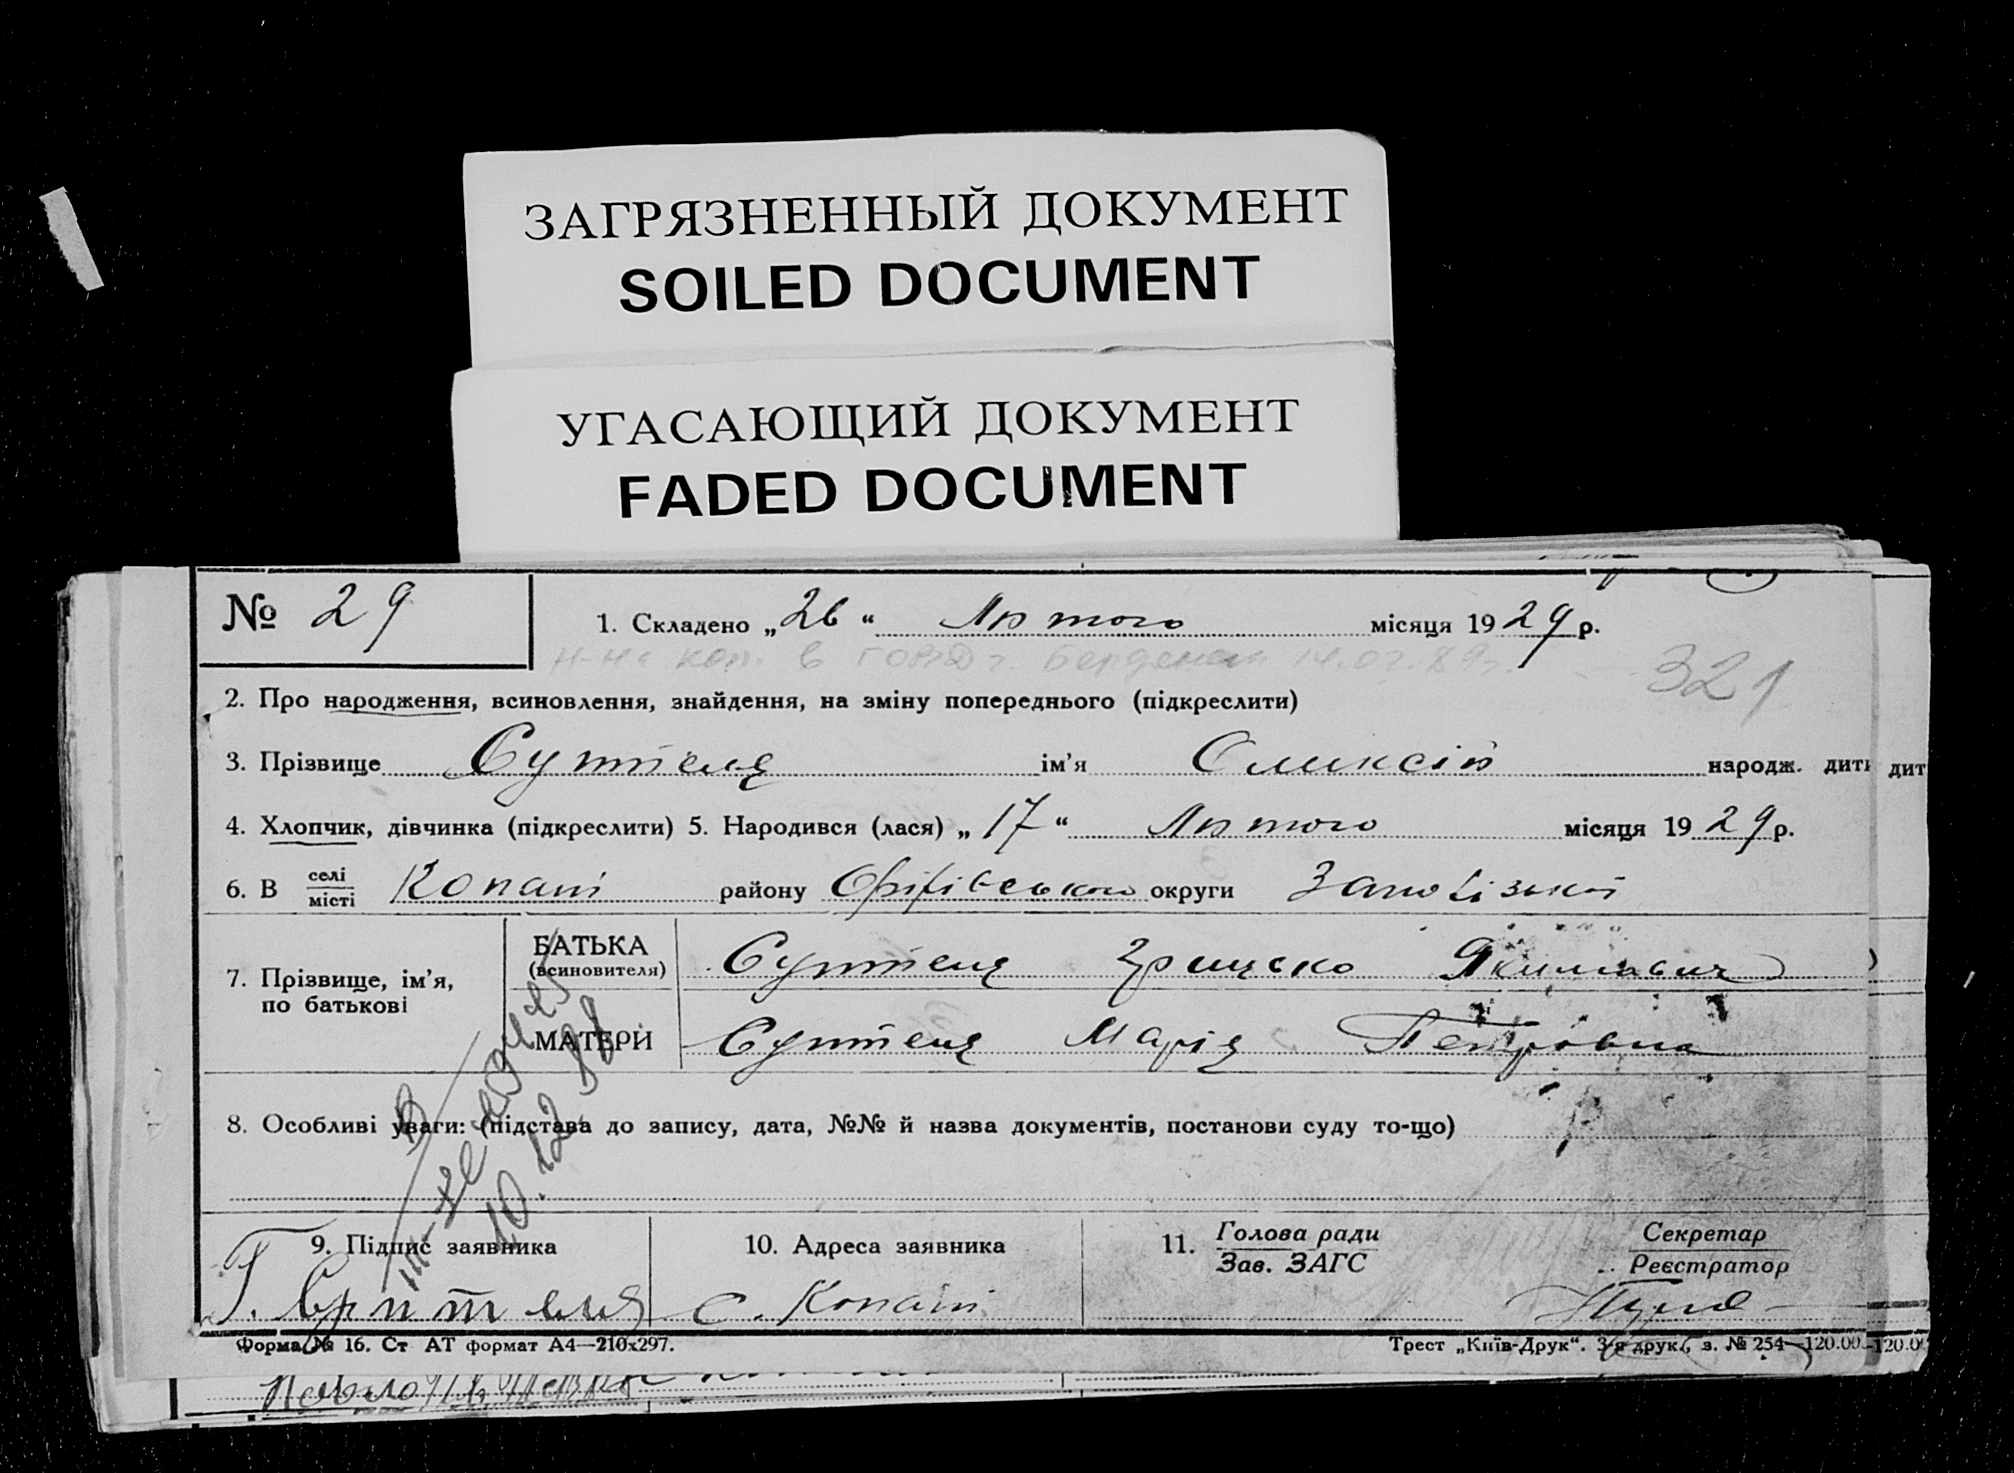 ЗАГРЯЗНЕННЫЙ ДОКУМЕНТ
SOILED DOCUMENT
УГАСАЮЩИЙ ДОКУМЕНТ
FADED DOCUMENT
№ 29
1. Складено „26“ Лютого місяця 1929 р.
в г. 14.02.89г.
321
2. Про народження, всиновлення, знайдення, на зміну попереднього (підкреслити)
3. Прізвище Суптеля ім'я Оликсій народж. дити дит
4. Хлопчик, дівчинка (підкреслити) 5. Народився (лася) „17“ Лютого місяця 1929 р.
6. В селі місті Копані району Оріхівського округи Запорізької
7. Прізвище, ім'я, по батькові
БАТЬКА (всиновителя) Суптеля Грицько Якимович
МАТЕРИ Суптеля Марія Петровна
8. Особливі уваги: (підстава до запису, дата, №№ й назва документів, постанови суду то-що)
10.12.
9. Підпис заявника
10. Адреса заявника
11. Голова ради Зав. ЗАГС
Секретар Реєстратор
Г. Суптеля с. Копані
Форма № 16. Ст АТ формат А4—210х297.
Трест „Київ-Друк“. 3-я друк., з. № 254—120.00 -120.0